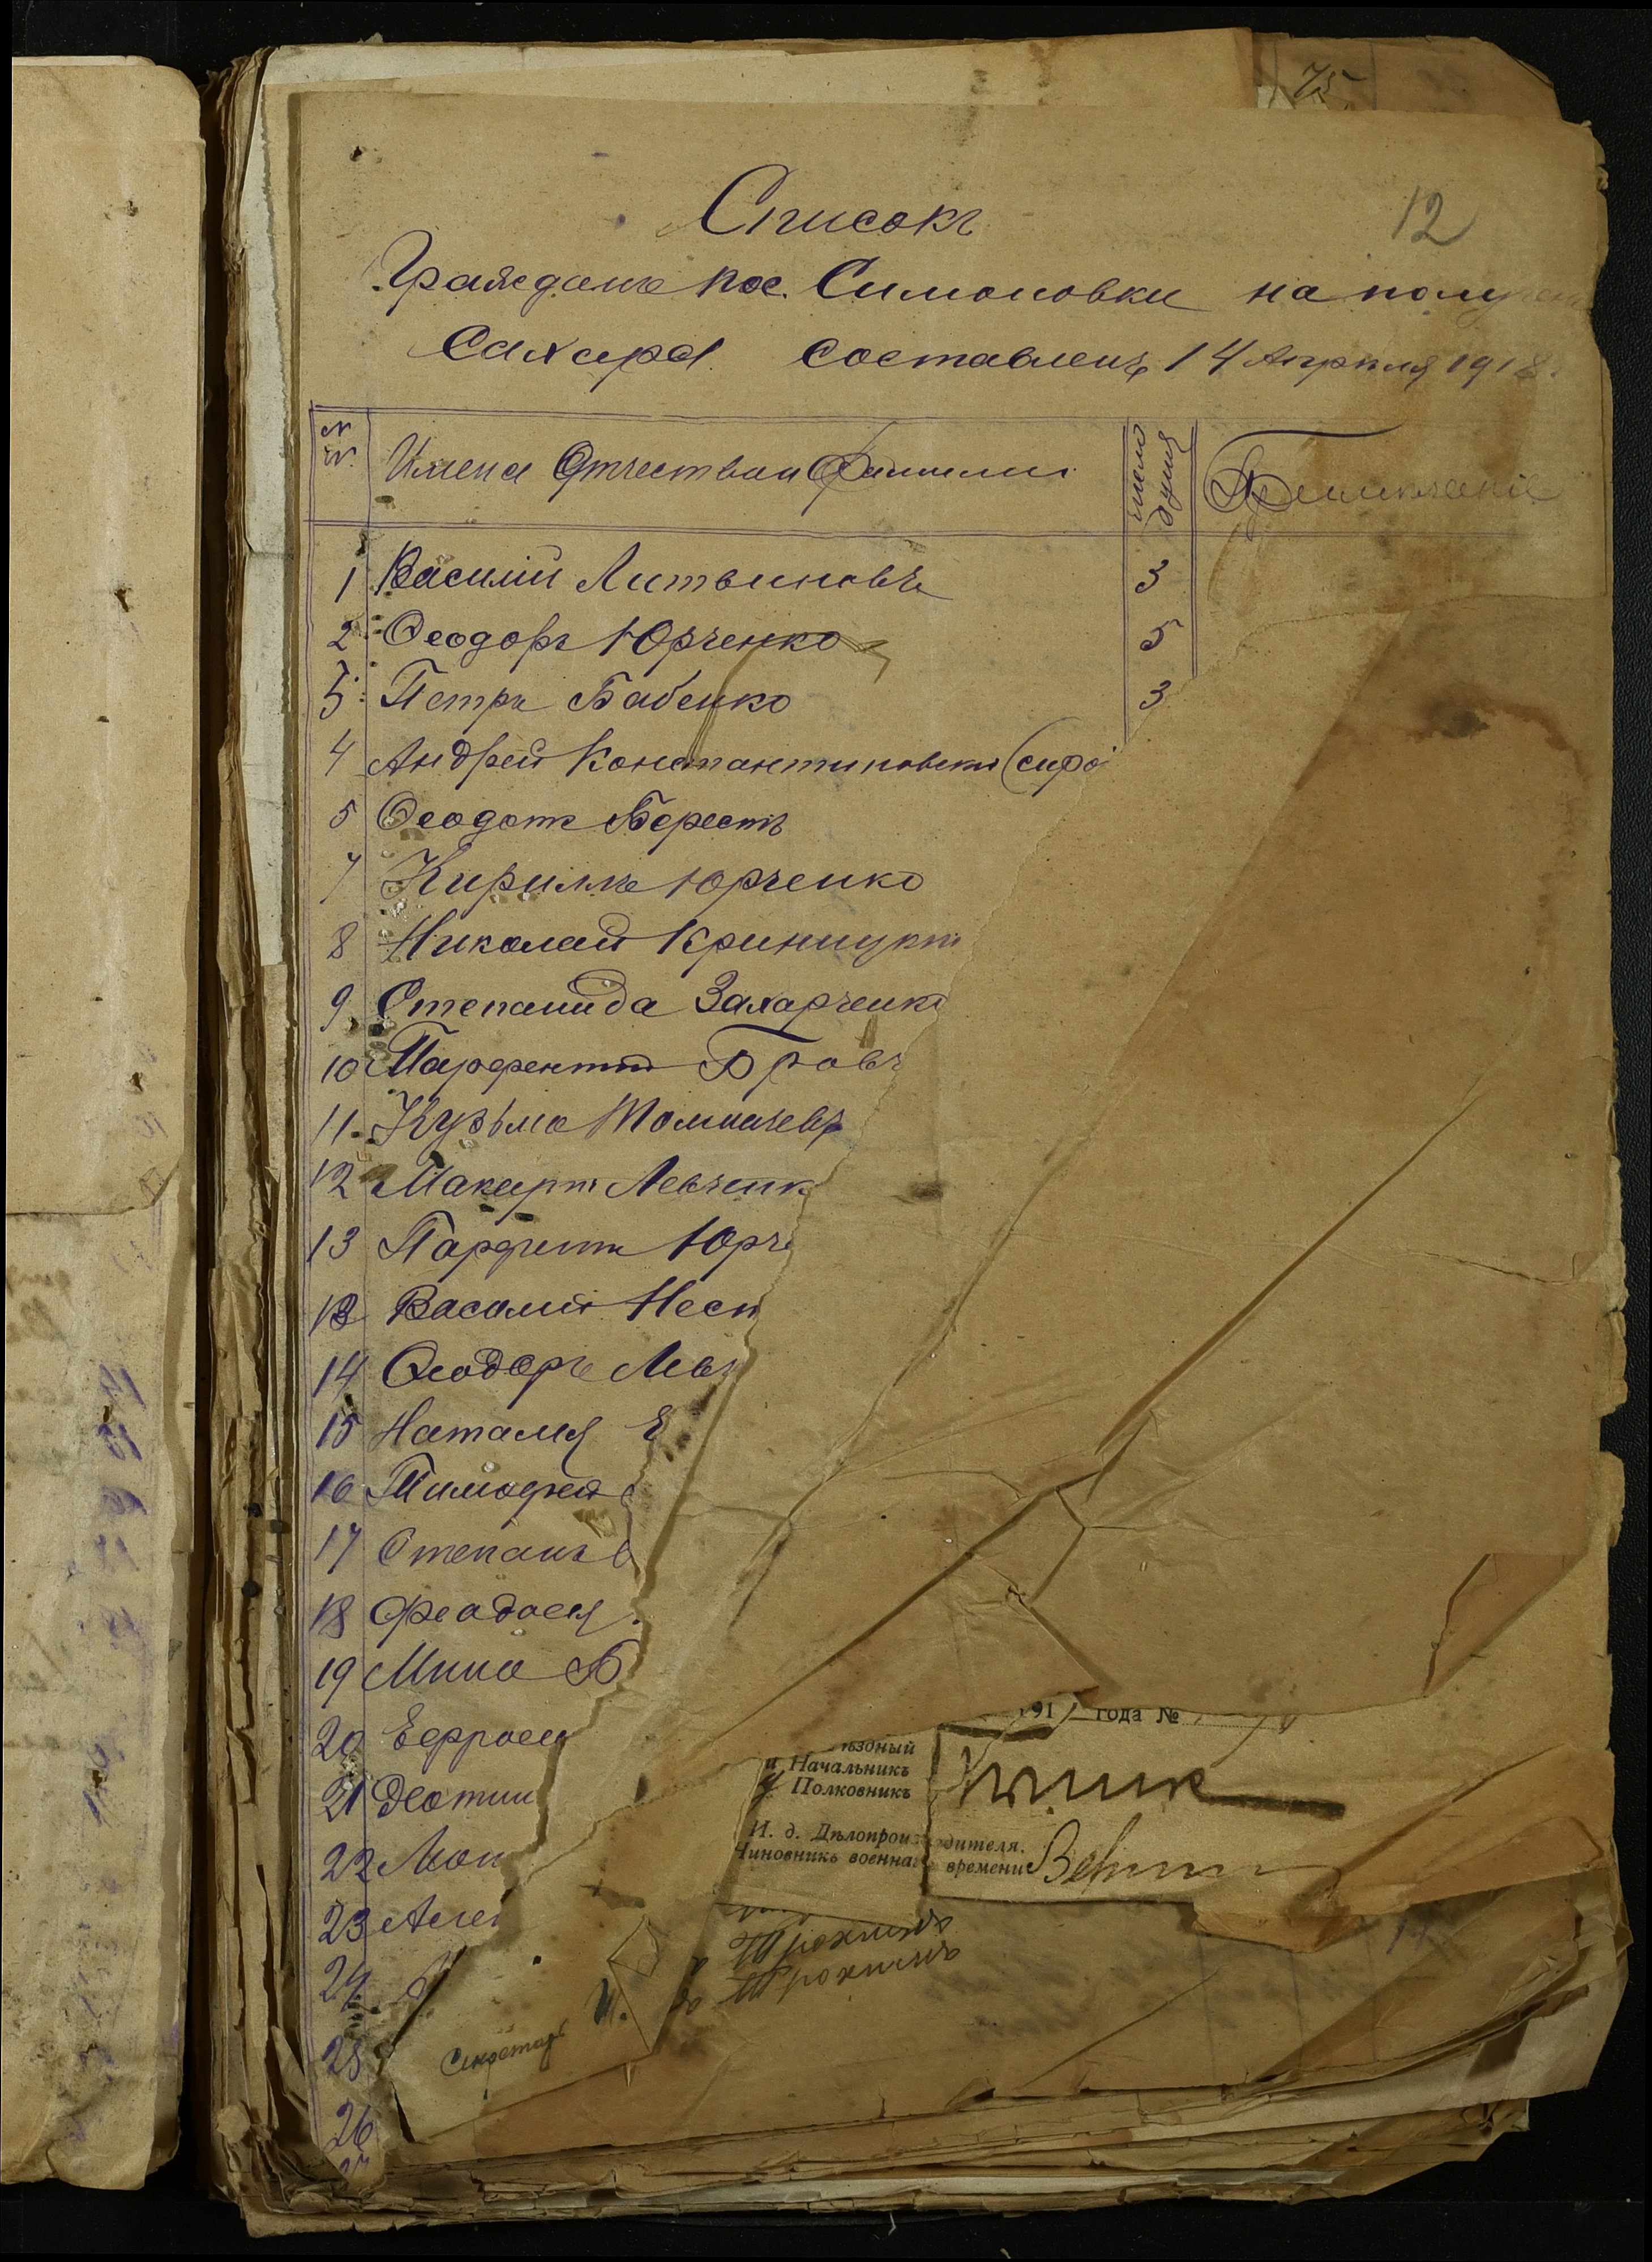 75
12
Списокъ
Гражданъ пос. Симоновки на получен
Сахара составленъ 14 Апрѣля 1918.
№ №
Имена Отчества и Фамилии
число душъ
Примѣчаніе
1 Василій Литвиновъ 3
2 Ѳеодоръ Юрченко 5
3 Петръ Бабенко 3
4 Андрей Константиновъ (сиро
5 Ѳеодотъ Берестъ
7 Кириллъ Юрченко
8 Николай Криницк
9 Степанида Захарченко
10 Парфентій Бров
11. Кузьма Толмачевъ
12 Макаръ Левченк
13 Парфентій Юрч
13 Василий Нест
14 Ѳеодоръ Лев
15 Наталія Е
16 Тимофей
17 Степанъ
18 Феодосія
19 Мина Б
20 Ефрос
21
22
23 Але
24
25
26
27
191 года №
ѣздный
Начальникъ
Полковникъ
И. д. Дѣлопроизводителя.
Чиновникъ военнаго времени
Трохимъ
Трохимъ
Секретарь